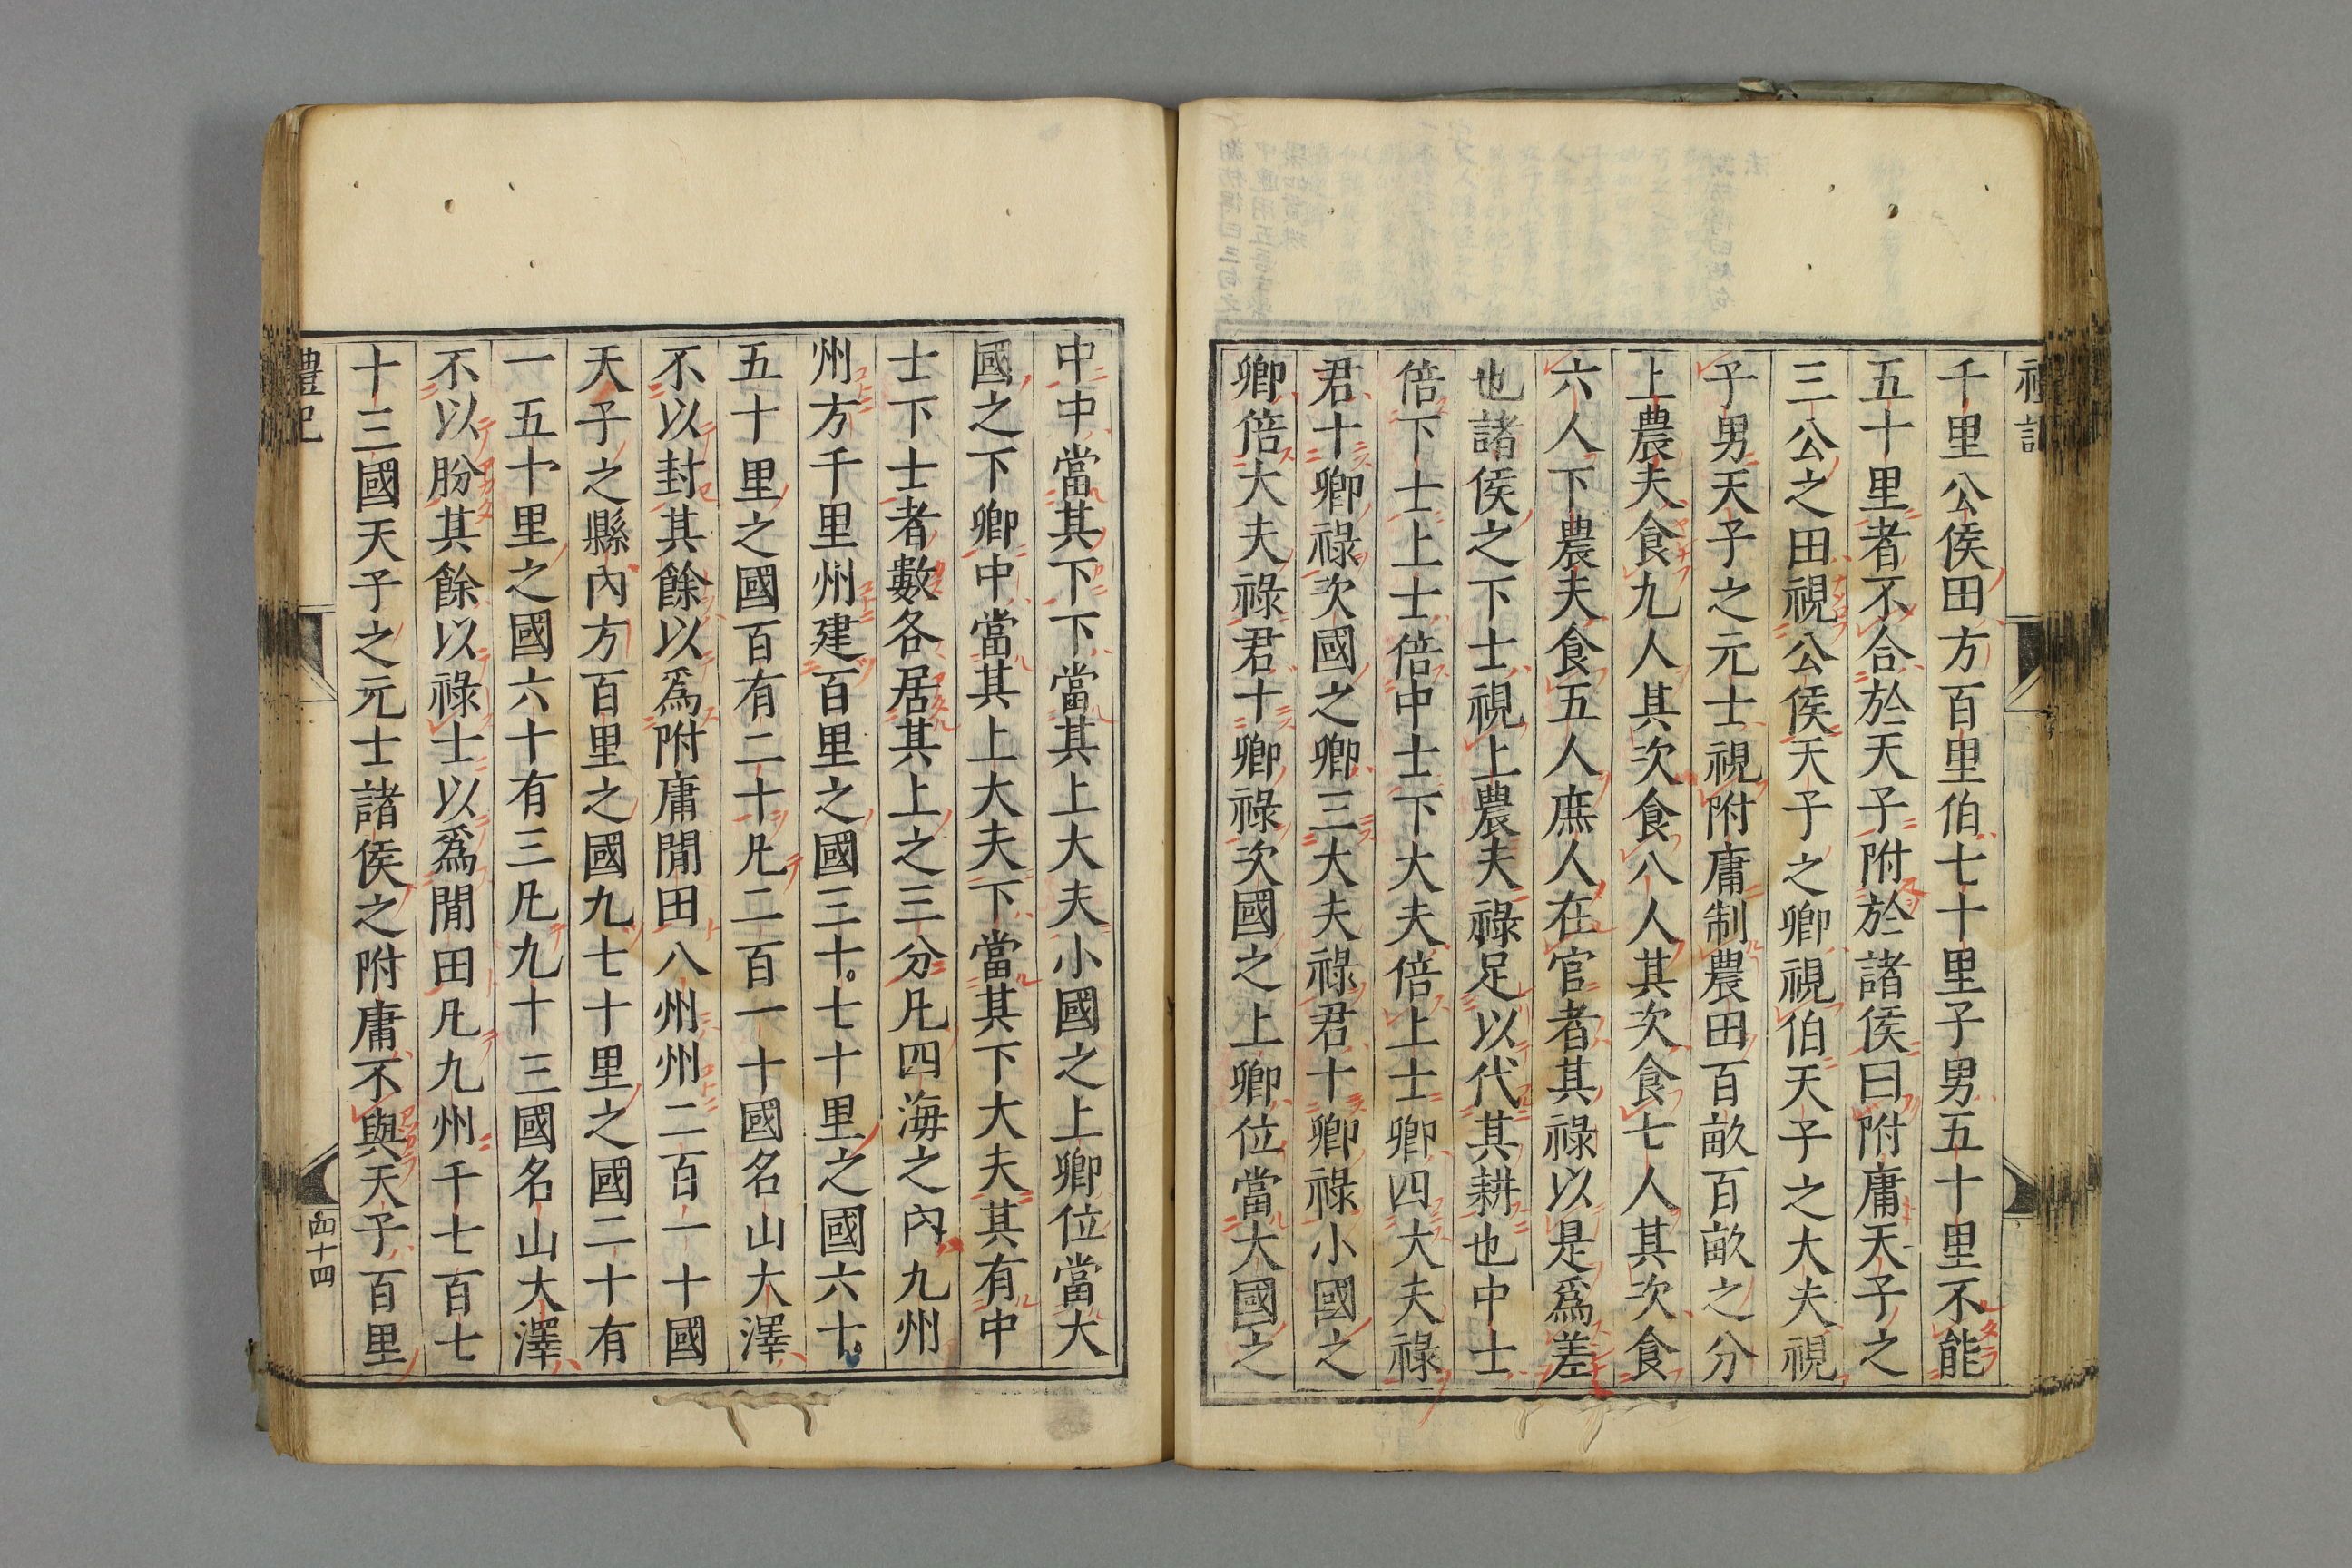 禮記
千里公侯田方百里伯七十里子男五十里不能
五十里者不合於天子附於諸侯曰附庸天子之
三公之田視公侯天子之卿視伯天子之大夫視
子男天子之元士視附庸制農田百畝百畝之分
上農夫食九人其次食八人其次食七人其次食
六人下農夫食五人庶人在官者其祿以是爲差
也諸侯之下士視上農夫祿足以代其耕也中士
倍下士上士倍中士下大夫倍上士卿四大夫祿
君十卿祿次國之卿三大夫祿君十卿祿小國之
卿倍大夫祿君十卿祿次國之上卿位當大國之
中中當其下下當其上大夫小國之上卿位當大
國之下卿中當其上大夫下當其下大夫其有中
士下士者數各居其上之三分凡四海之內九州
州方千里州建百里之國三十。七十里之國六十。
五十里之國百有二十凡二百一十國名山大澤
不以封其餘以爲附庸閒田八州州二百一十國
天子之縣內方百里之國九七十里之國二十有
一五十里之國六十有三凡九十三國名山大澤
不以朌其餘以祿士以爲閒田凡九州千七百七
十三國天子之元士諸侯之附庸不與天子百里
禮記
四十四